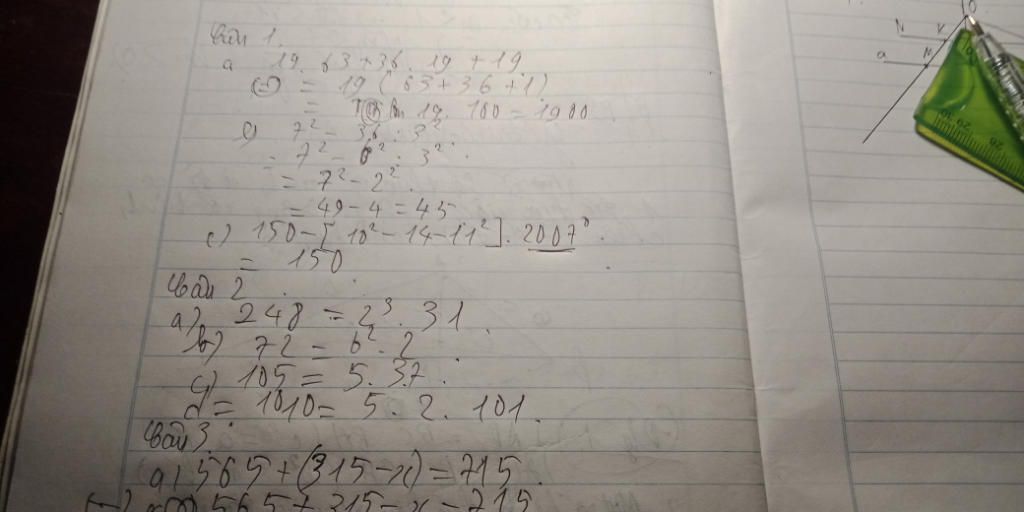 Bài 1.
a 19. 63+36. 19 +19
(=) = 19 (63+36+1)
= 19. 100 = 1900.
b) 7² - 36 : 3²
= 7² - 6² : 3².
= 7² - 2².
= 49 - 4 = 45
c) 150-[10² - 14 - 11²]. 2007⁰.
= 150
Bài 2.
a) 248 = 2³. 31.
b) 72 = 6². 2
c) 105 = 5. 3.7.
d = 1010 = 5. 2. 101.
Bài 3.
a) 565 + (315 - x) = 715.
(=) 565 + 315 - x = 715
N K
a M